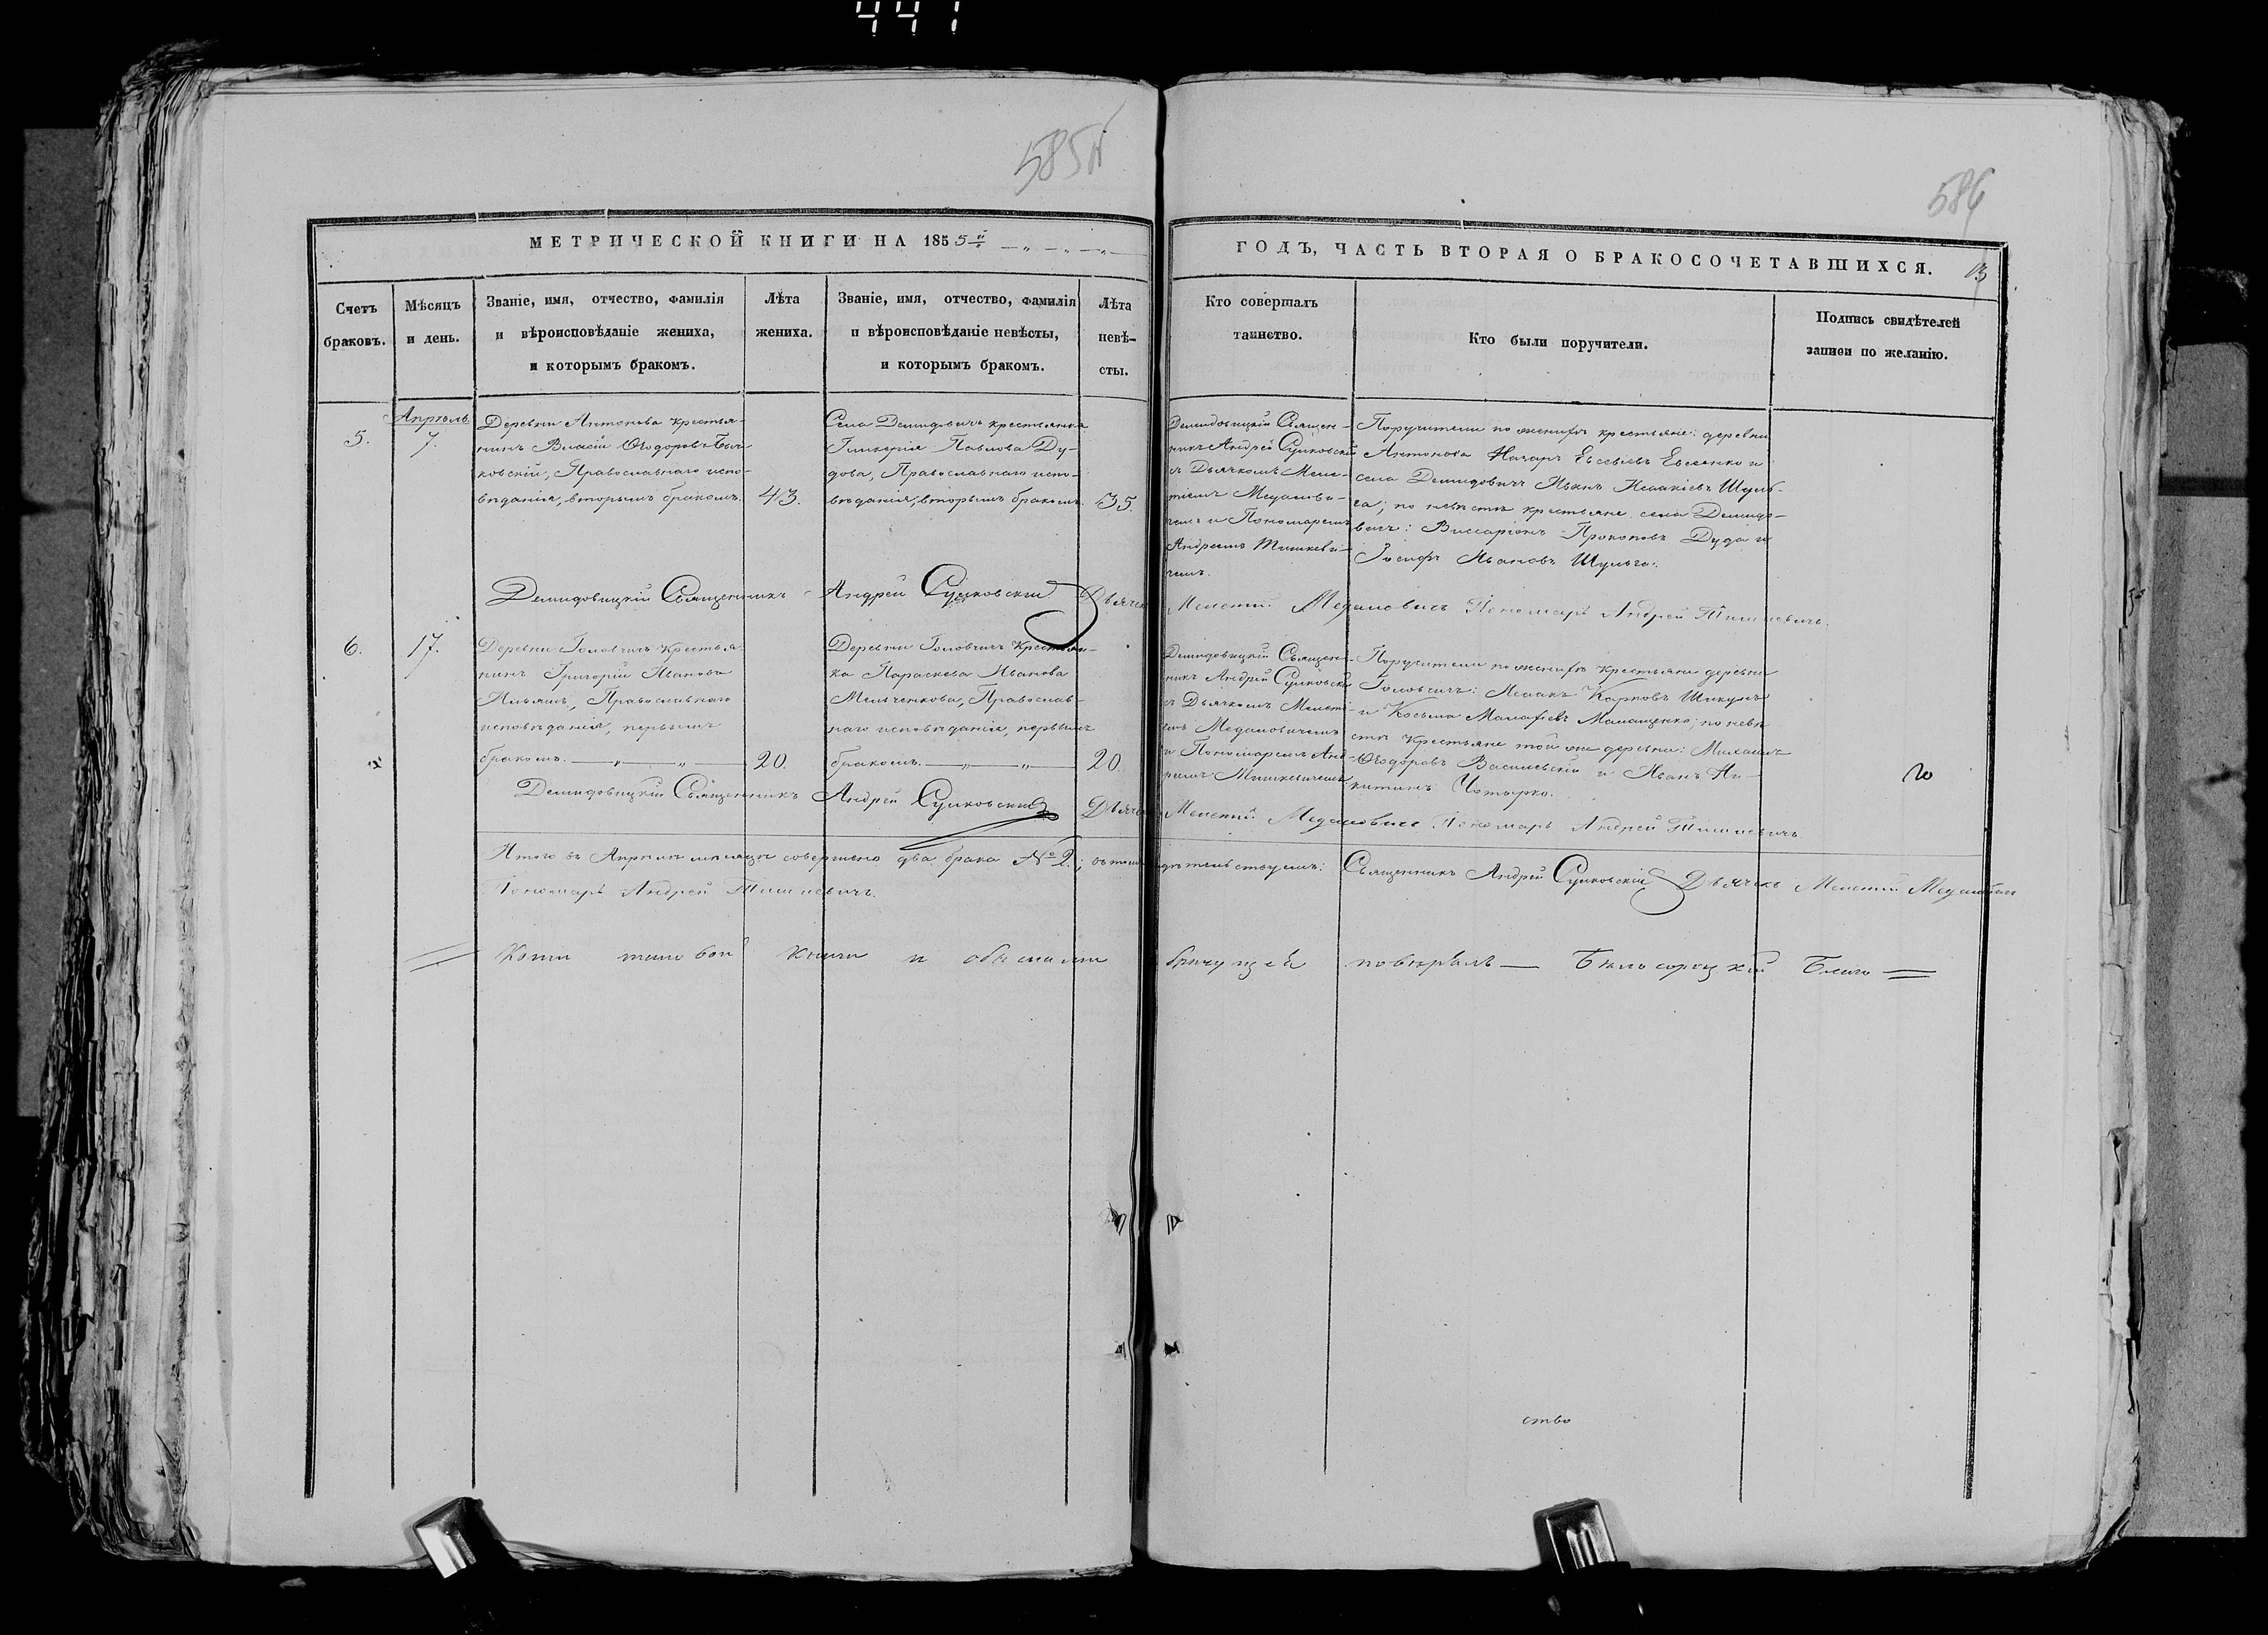 441
585
586
МЕТРИЧЕСКОЙ КНИГИ НА 1855й
ГОДЪ, ЧАСТЬ ВТОРАЯ О БРАКОСОЧЕТАВШИХСЯ.
13
Счетъ
браковъ.
Мѣсяцъ
и день.
Званіе, имя, отчество, фамилія
и вѣроисповѣданіе жениха,
и которымъ бракомъ.
Лѣта
жениха.
Званіе, имя, отчество, фамилія
и вѣроисповѣданіе невѣсты,
и которымъ бракомъ.
Лѣта
невѣ-
сты.
Кто совершалъ
таинство.
Кто были поручители.
Подпись свидѣтелей
записи по желанію.
5.
Апрѣль.
7.
Деревни Антонова крестья-
нинъ Власій Ѳеодоровъ Быч-
ковскій, Православнаго испо-
вѣданія, вторымъ бракомъ.
43.
Села Демидовичъ крестьянка
Гликерія Павлова Ду-
дова, Православнаго испо-
вѣданія, вторымъ бракомъ.
35.
Демидовицкій Священ-
никъ Андрей Сулковскій
съ Дьячкомъ Меле-
тіемъ Медалови-
чемъ и Пономаремъ
Андреемъ Тишкеви-
чемъ.
Поручители по женихѣ крестьяне: деревни
Антонова Назаръ Евсевіевъ Евсеенко и
села Демидовичъ Иванъ Исаакіевъ Шуль-
га; по невѣстѣ крестьяне села Демидо-
вичъ: Виссаріонъ Прокоповъ Дуда и
Іосифъ Ивановъ Шульга.
Демидовицкій Священникъ Андрей Сулковскій Дьячекъ Мелетій Медаловичъ Пономарь Андрей Тишкевичъ.
6.
17.
Деревни Головчицъ крестья-
нинъ Григорій Ивановъ
Ильяшъ, Православнаго
исповѣданія, первымъ
бракомъ.
20.
Деревни Головчицъ Крестьян-
ка Параскева Иванова
Мельченкова, Православ-
наго исповѣданія, первымъ
бракомъ.
20.
Демидовицкій Священ-
никъ Андрей Сулковскій
съ Дьячкомъ Мелеті-
емъ Медаловичемъ
и Пономаремъ Анд-
реемъ Тишкевичемъ.
Поручители по женихѣ крестьяне деревни
Головчицъ: Исаакъ Карповъ Шикунъ
и Косьма Малафіевъ Малащенко; по невѣ-
стѣ крестьяне той же деревни: Михаилъ
Ѳеодоровъ Василевскій и Иванъ Ни-
китинъ Чотырко.
Демидовицкій Священникъ Андрей Сулковскій Дьячекъ Мелетій Медаловичъ Пономарь Андрей Тишкевичъ
Итого въ Апрѣлѣ мѣсяцѣ совершено два брака № 2.; въ томъ свидѣтельствуемъ: Священникъ Андрей Сулковскій Дьячекъ Мелетій Медаловичъ
Пономарь Андрей Тишкевичъ.
Копіи таковой книги и обыскамъ повѣрялъ Благо
ство